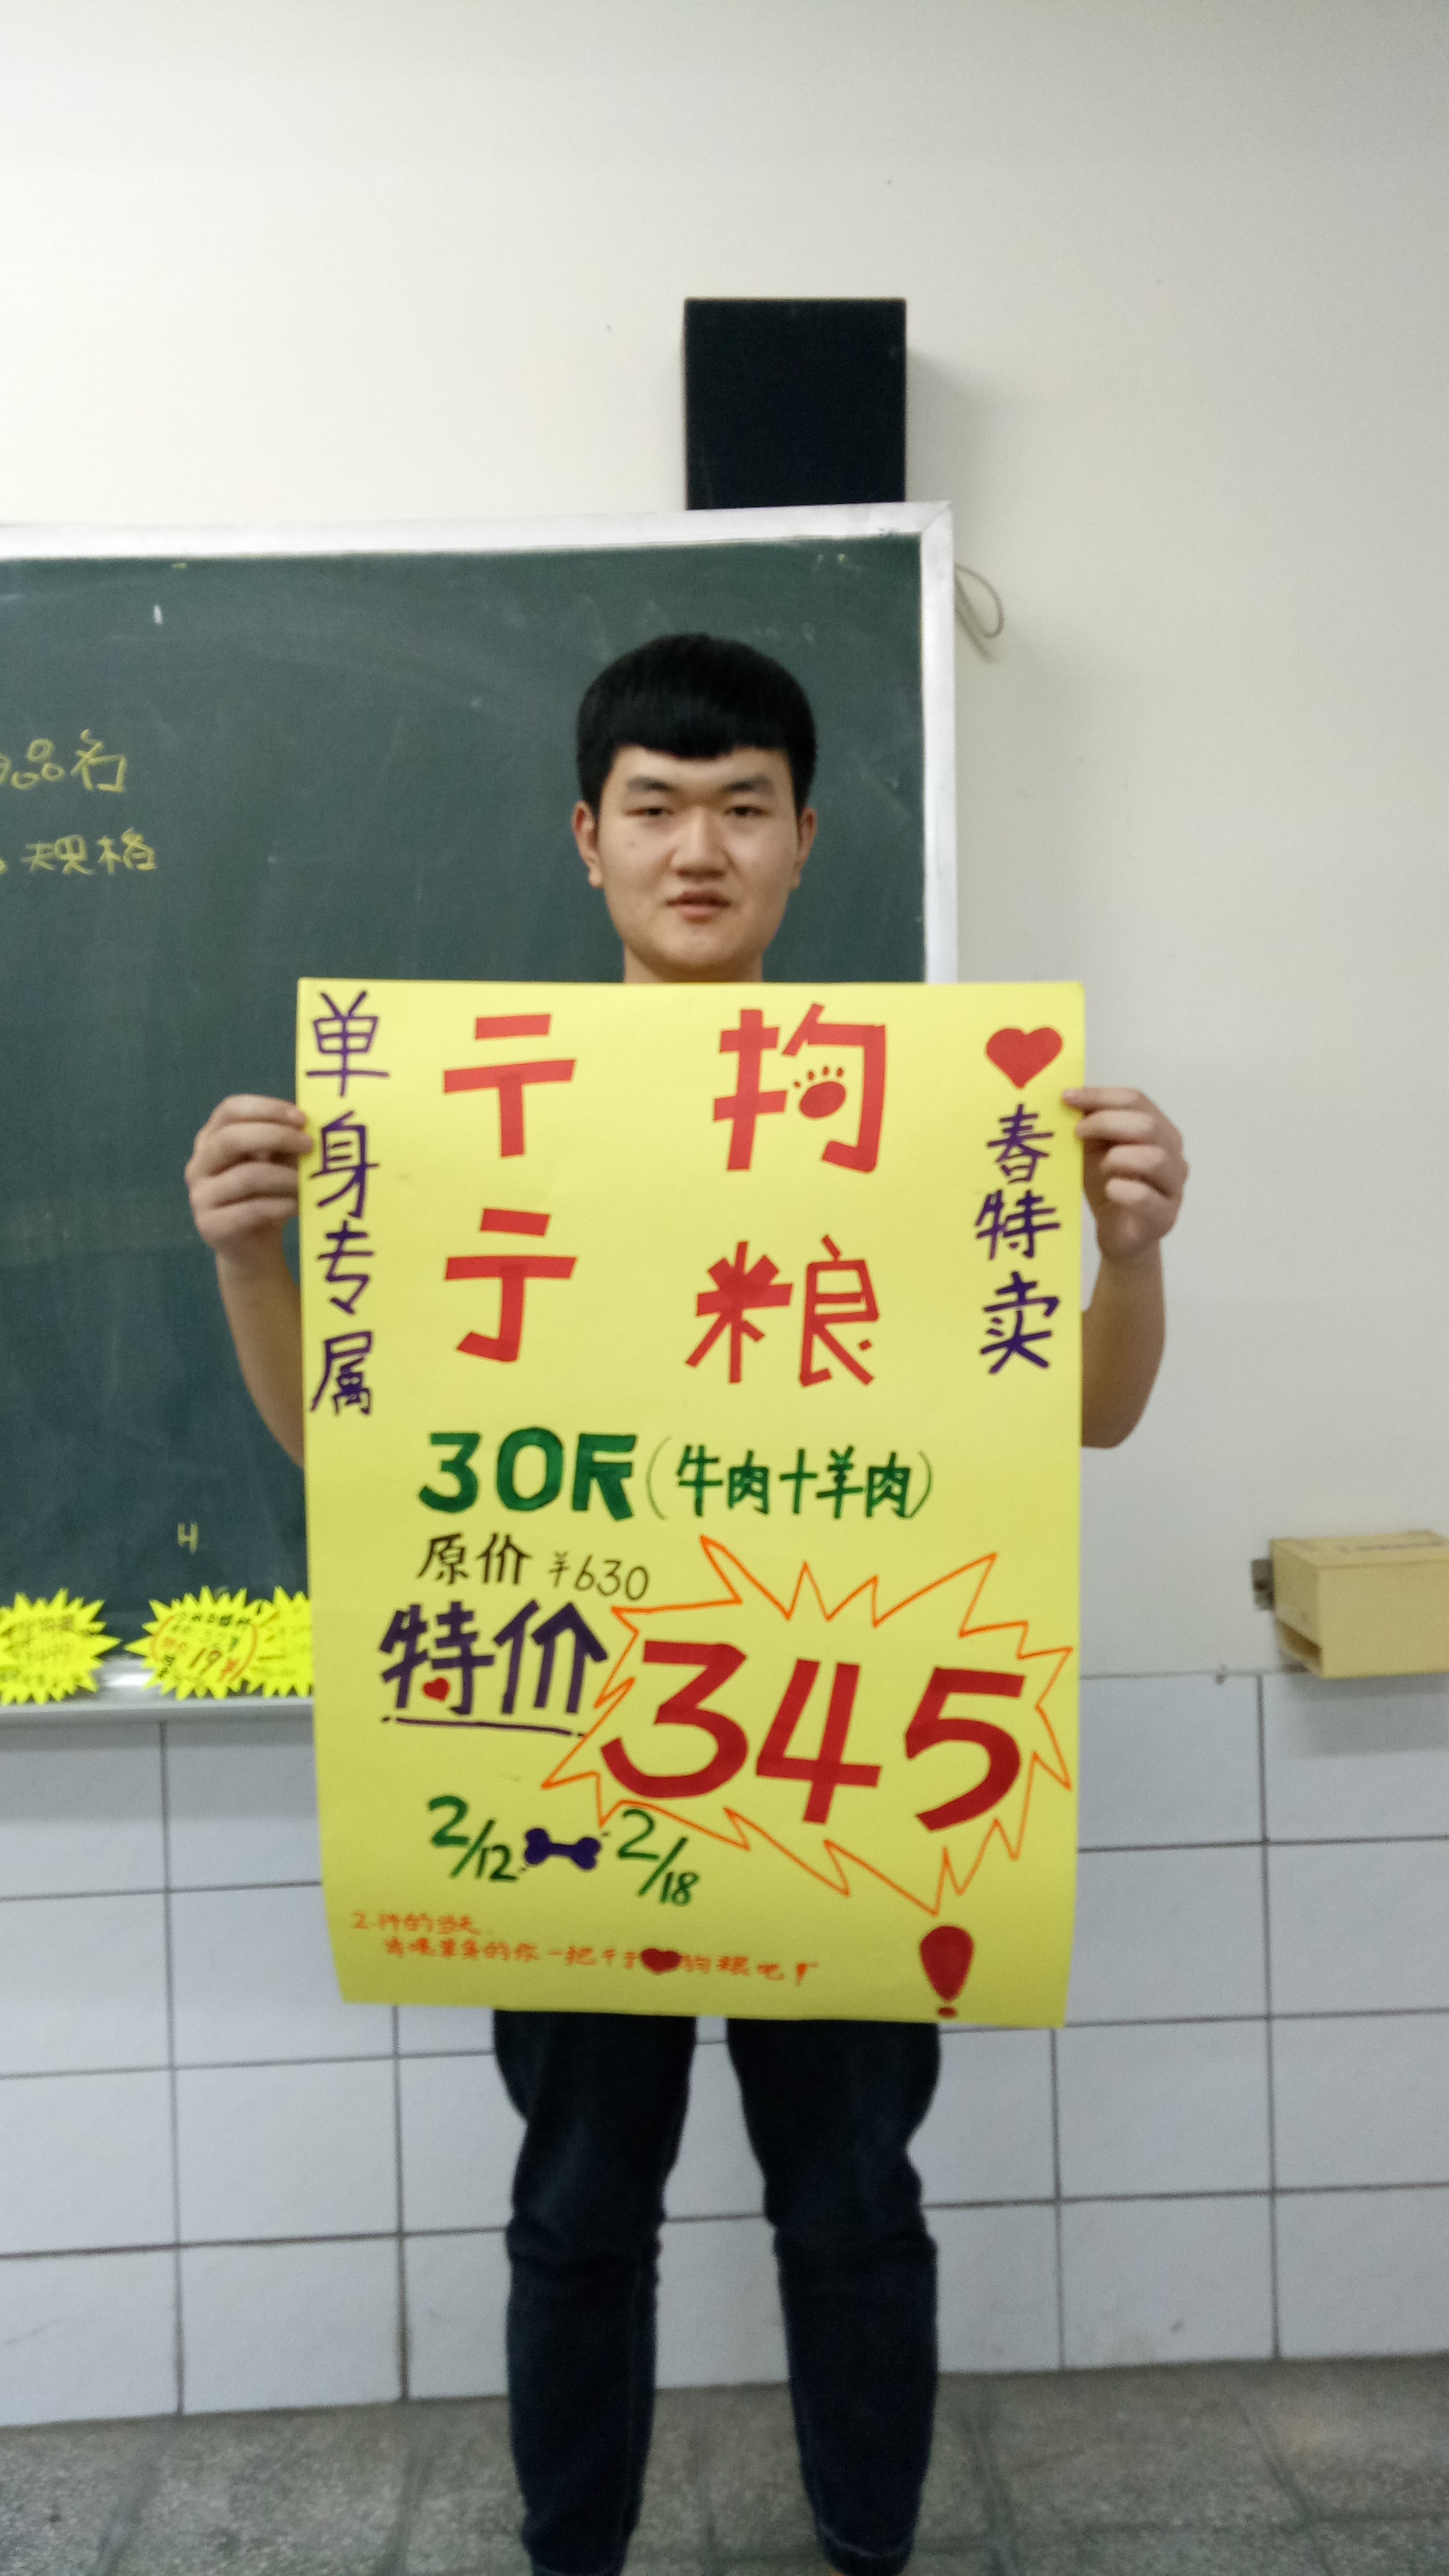 品名
规格
单身专属
亍于
狗粮
春特卖
30斤(牛肉+羊肉)
原价 ¥630
特价 345!
2/12 2/18
2.14的当天
请喂单身的你一把亍于狗粮吧!
特价 19